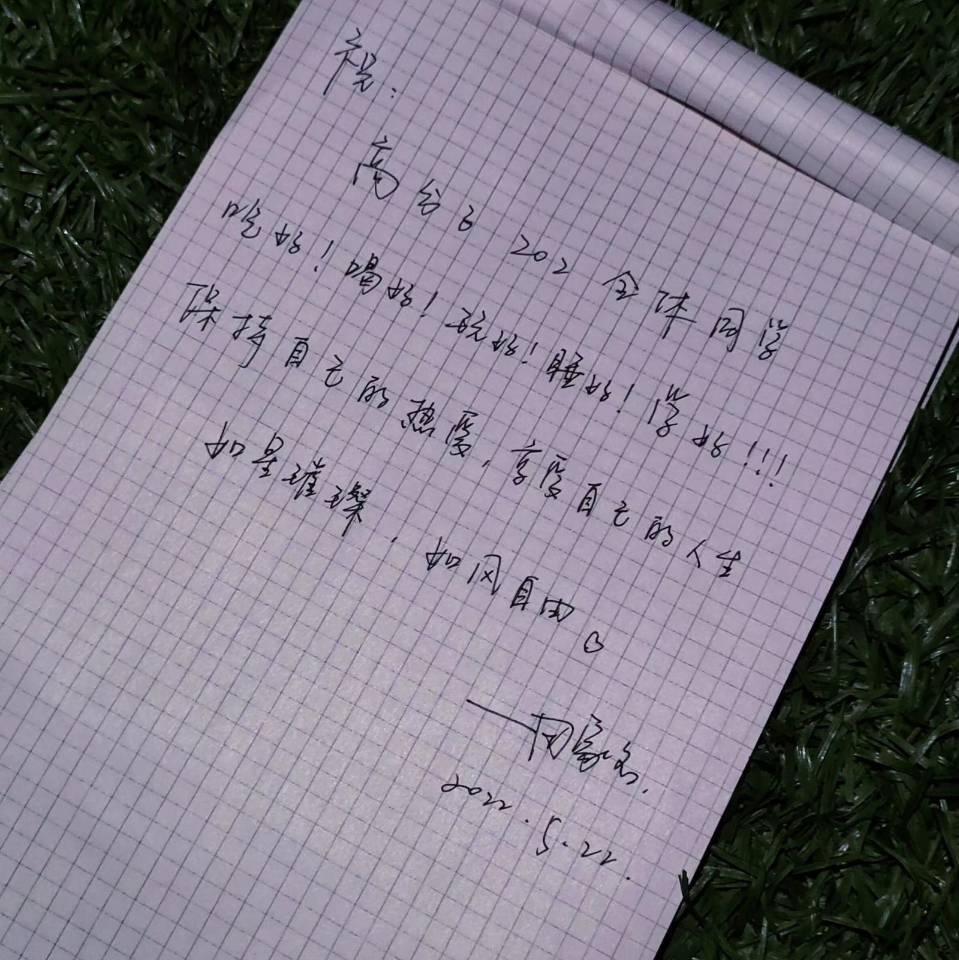 祝:
高分子202全体同学
吃好!喝好!玩好!睡好!学好!!!
保持自己的热爱,享受自己的人生
如星璀璨,如风自由。
——周家
2022.5.22.